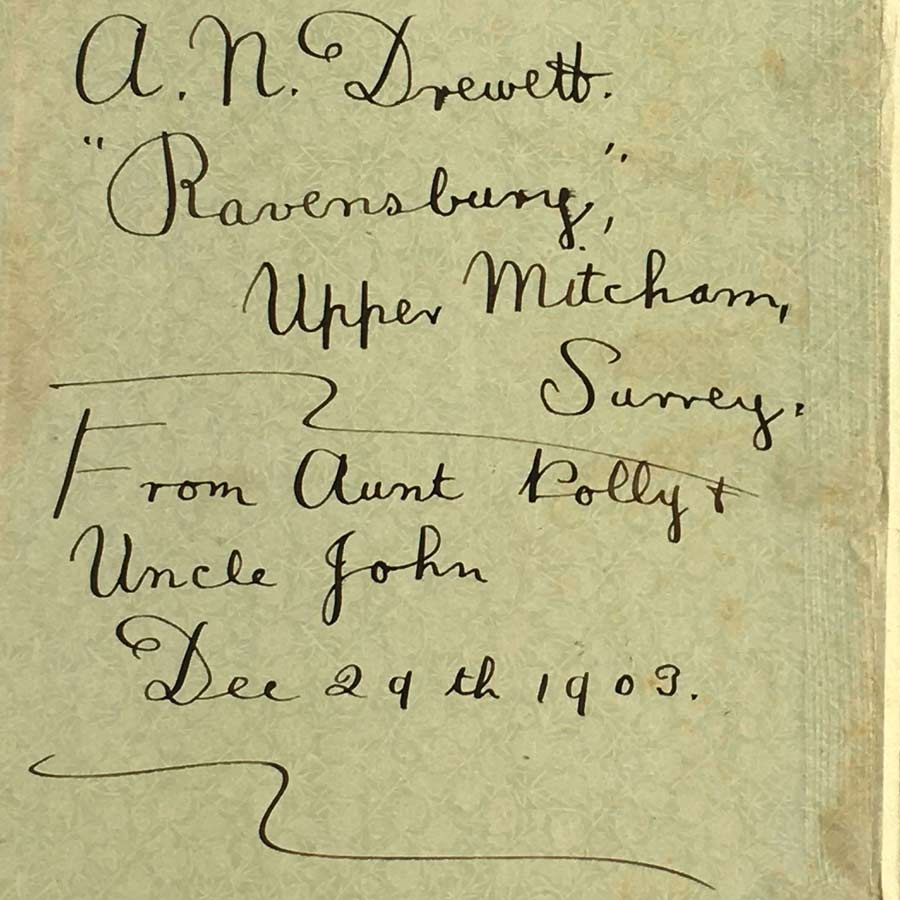 A. N. Drewett.
"Ravensbury,"
Upper Mitcham,
Surrey.
From Aunt Polly +
Uncle John
Dec 29th 1903.